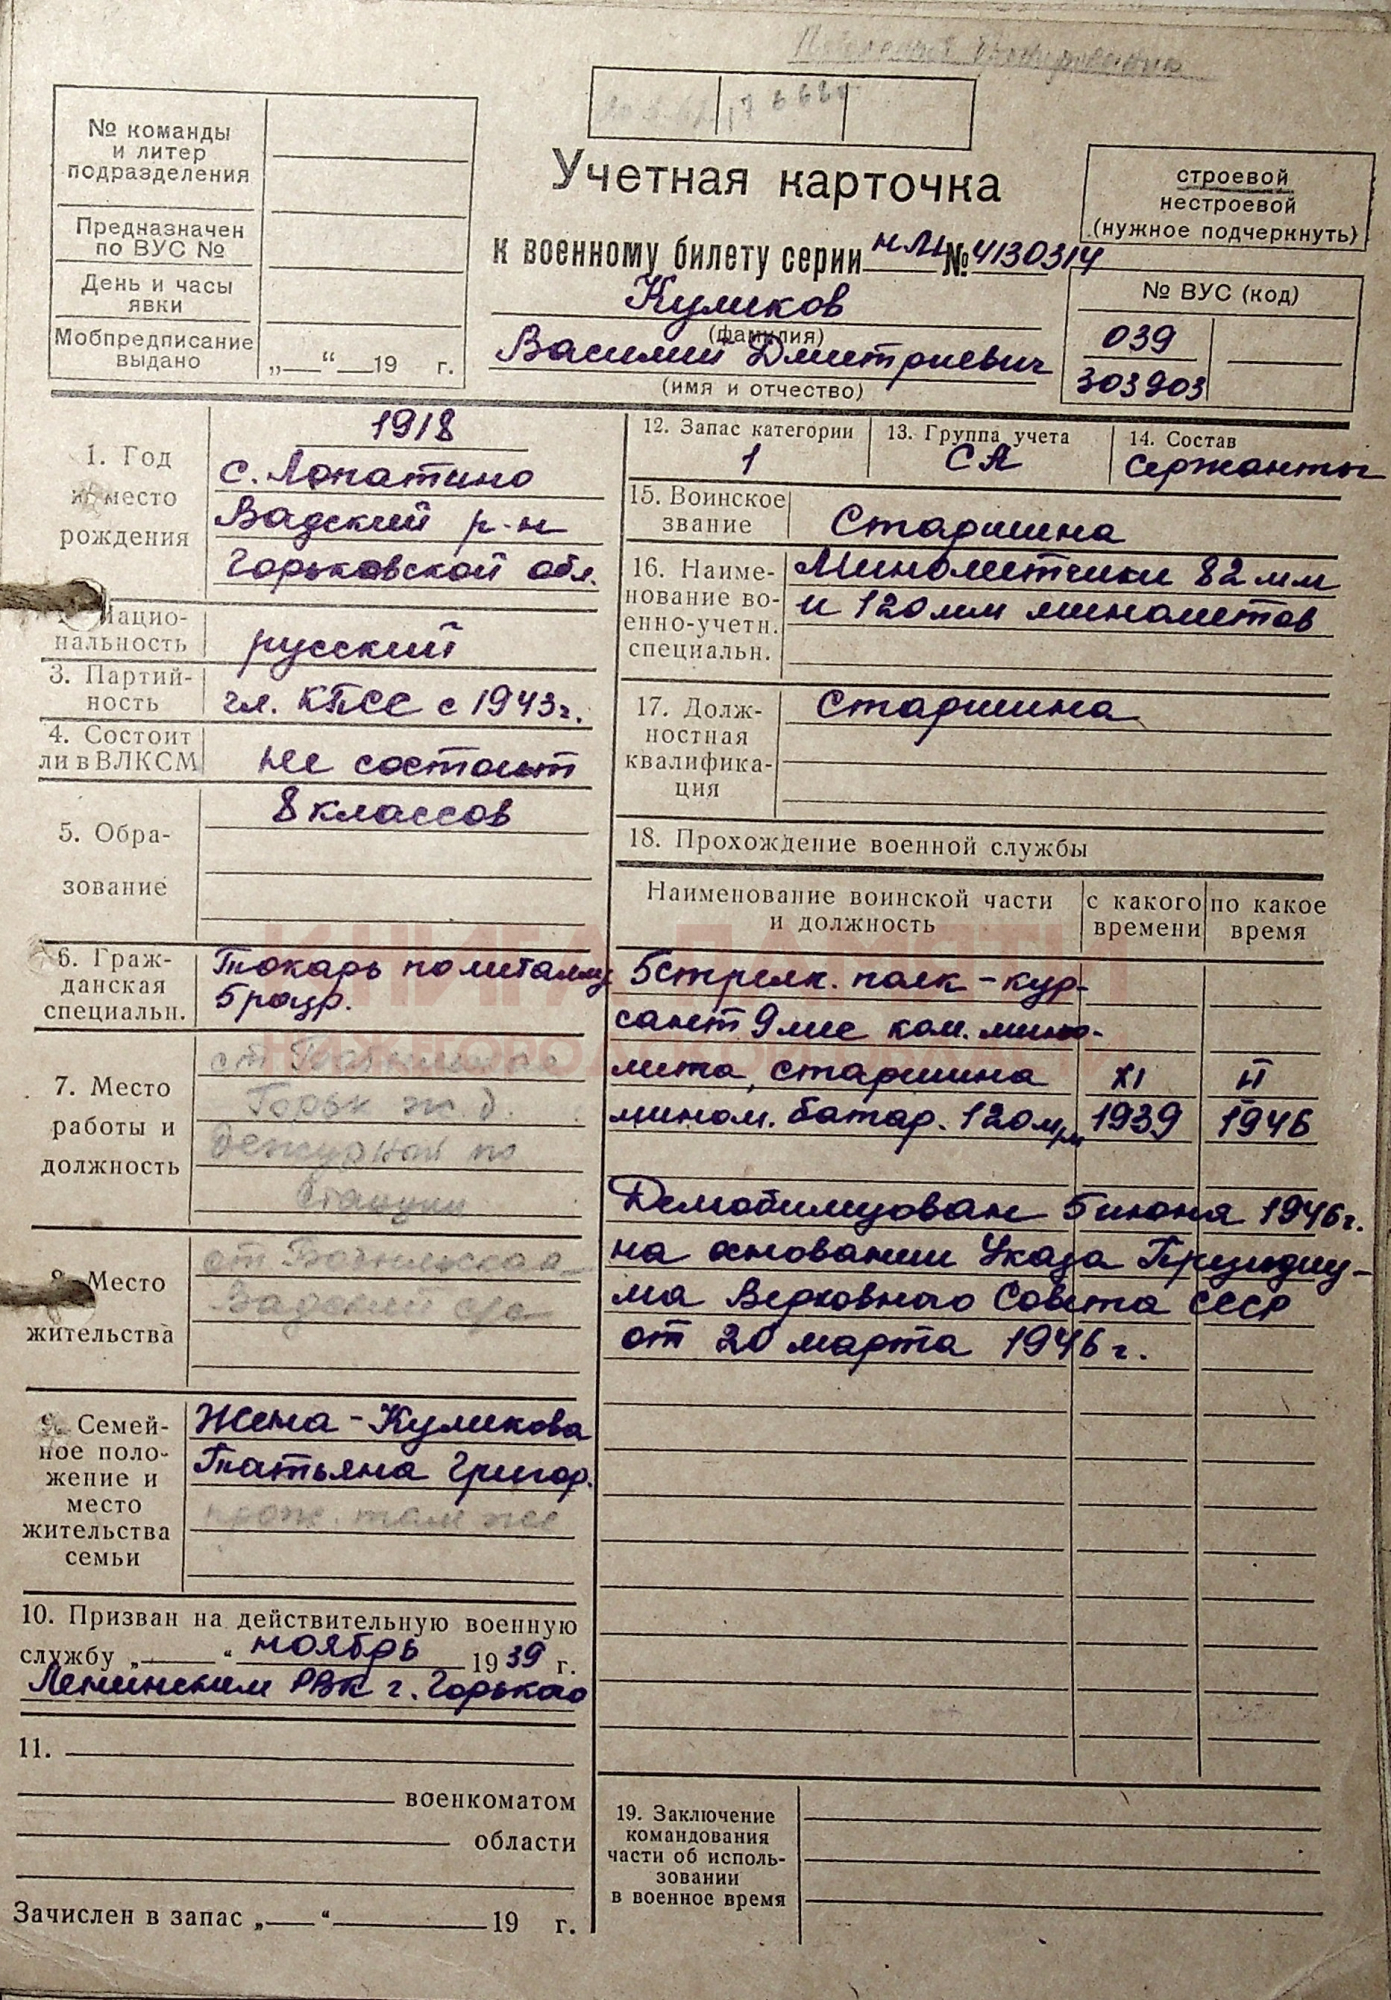 № команды
и литер
подразделения
Предназначен
по ВУС №
День и часы
явки
Мобпредписание
выдано „ “ 19 г.
Учетная карточка
к военному билету серии НЛ № 4130314
Куликов
(фамилия)
Василий Дмитриевич
(имя и отчество)
строевой
нестроевой
(нужное подчеркнуть)
№ ВУС (код)
039
303903
1. Год
и место
рождения
1918
с. Лопатино
Вадский р-н
Горьковской обл.
Нацио-
нальность
русский
3. Партий-
ность
чл. КПСС с 1943г.
4. Состоит
ли в ВЛКСМ
не состоит
5. Обра-
зование
8 классов
6. Граж-
данская
специальн.
Токарь по металлу
5 разр.
7. Место
работы и
должность
Горьк ж.д.
дежурный по
станции
8. Место
жительства
9. Семей-
ное поло-
жение и
место
жительства
семьи
Жена - Куликова
Татьяна Григор.
прож. там же
10. Призван на действительную военную
службу „ “ ноябрь 1939 г.
Ленинским РВК г. Горького
11.
военкоматом
области
Зачислен в запас „ “ 19 г.
12. Запас категории
1
13. Группа учета
СА
14. Состав
сержанты
15. Воинское
звание
Старшина
16. Наиме-
нование во-
енно-учетн.
специальн.
Минометчики 82 мм
и 120 мм минометов
17. Долж-
ностная
квалифика-
ция
Старшина
18. Прохождение военной службы
Наименование воинской части
и должность
с какого
времени
по какое
время
5 стрелк. полк - кур-
сант 9 мес ком. мино-
мета, старшина XI II
мином. батар. 120 мм 1939 1946
Демобилизован 5 июня 1946г.
на основании Указа Президиу-
ма Верховного Совета СССР
от 20 марта 1946 г.
19. Заключение
командования
части об исполь-
зовании
в военное время
КНИГА ПАМЯТИ
НИЖЕГОРОДСКОЙ ОБЛАСТИ